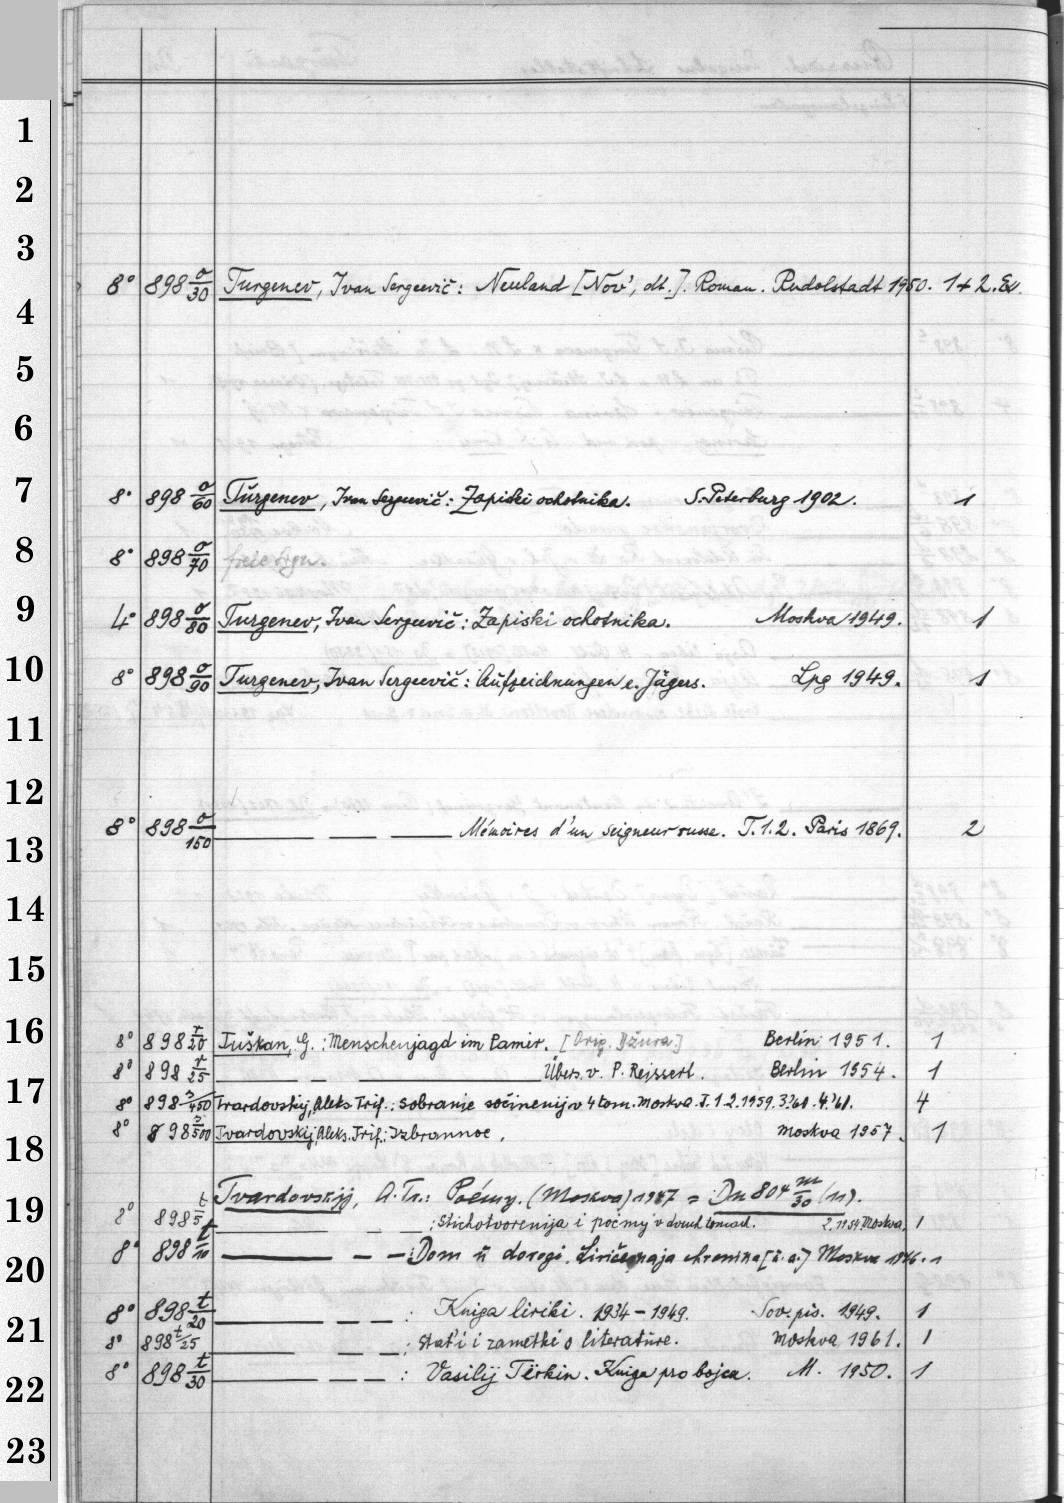 1
2
3
8° 898 σ/30 Turgenev, Ivan Sergeevič: Neuland [Nov', dt.]. Roman. Rudolstadt 1950. 1+2. Ex.
4
5
6
7
8° 898 σ/60 Turgenev, Ivan Sergeevič: Zapiski ochotnika. S. Peterburg 1902. 1
8
8° 898 σ/70 freie Sign.
9
4° 898 σ/80 Turgenev, Ivan Sergeevič: Zapiski ochotnika. Moskva 1949. 1
10
8° 898 σ/90 Turgenev, Ivan Sergeevič: Aufzeidnungen e. Jägers. Lpg 1949. 1
11
12
8° 898 σ/150 ——— — —— Mémoires d'un seigneur russe. T.1.2. Paris 1869. 2
13
14
15
16
8° 898 τ/20 Tuškan, G.: Menschenjagd im Pamir. [Orig. Džura] Berlin 1951. 1
8° 898 τ/25 ——— — ——— Übers. v. P. Reissert. Berlin 1954. 1
17
8° 898 /450 Tvardovskij, Aleks Trif.: Sobranie sočinenij v 4 tom. Moskva. T. 1.2.1959. 3.'60. 4.'61. 4
8° 898 /500 Tvardovskij, Aleks. Trif.: Izbrannoe, Moskva 1957. 1
18
Tvardovskij, A. Tr.: Poėmy. (Moskva) 1947 = Dn 804 m/30 (11).
19
8° 898 t/5 ——— — — : Stichotvorenija i poėmy v dvuch tomach. 2. 1954 Moskva, 1
8° 898 t/10 ——— — —: Dom u dorogi. Liričeskaja chronika [u. a.] Moskva 1946. 1
20
8° 898 t/20 ——— — — : Kniga liriki. 1934-1949. Sov. pis. 1949. 1
21
8° 898 t/25 ——— — — : Stat'i i zametki o literature. Moskva 1961. 1
8° 898 t/30 ——— — — : Vasilij Tërkin. Kniga pro bojca. M. 1950. 1
22
23